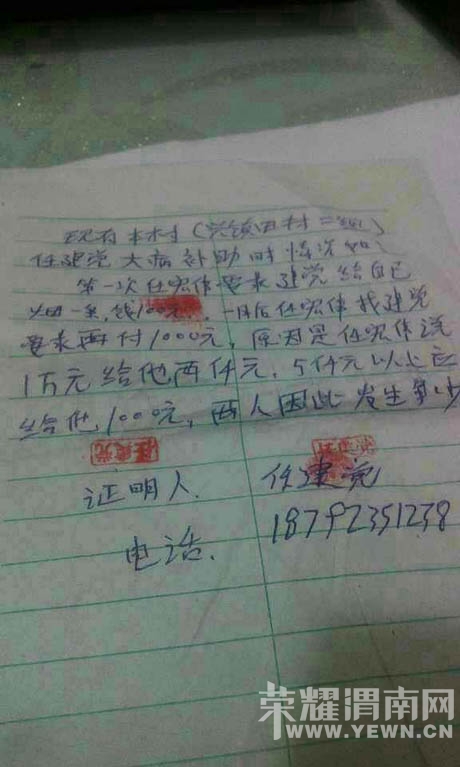 现有本村(兴镇田村二组)
任建党大病补助时情况如
第一次任宏体要求建党给自己
烟一条,钱100元,一月后任宏体找建党
要求再付1000元,原因是任宏体说
1万元给他两仟元,5仟元以上应
给他1000元,两人因此发生争吵
证明人. 任建党
电话. 18792351238
荣耀渭南网
WWW.YEWN.CN